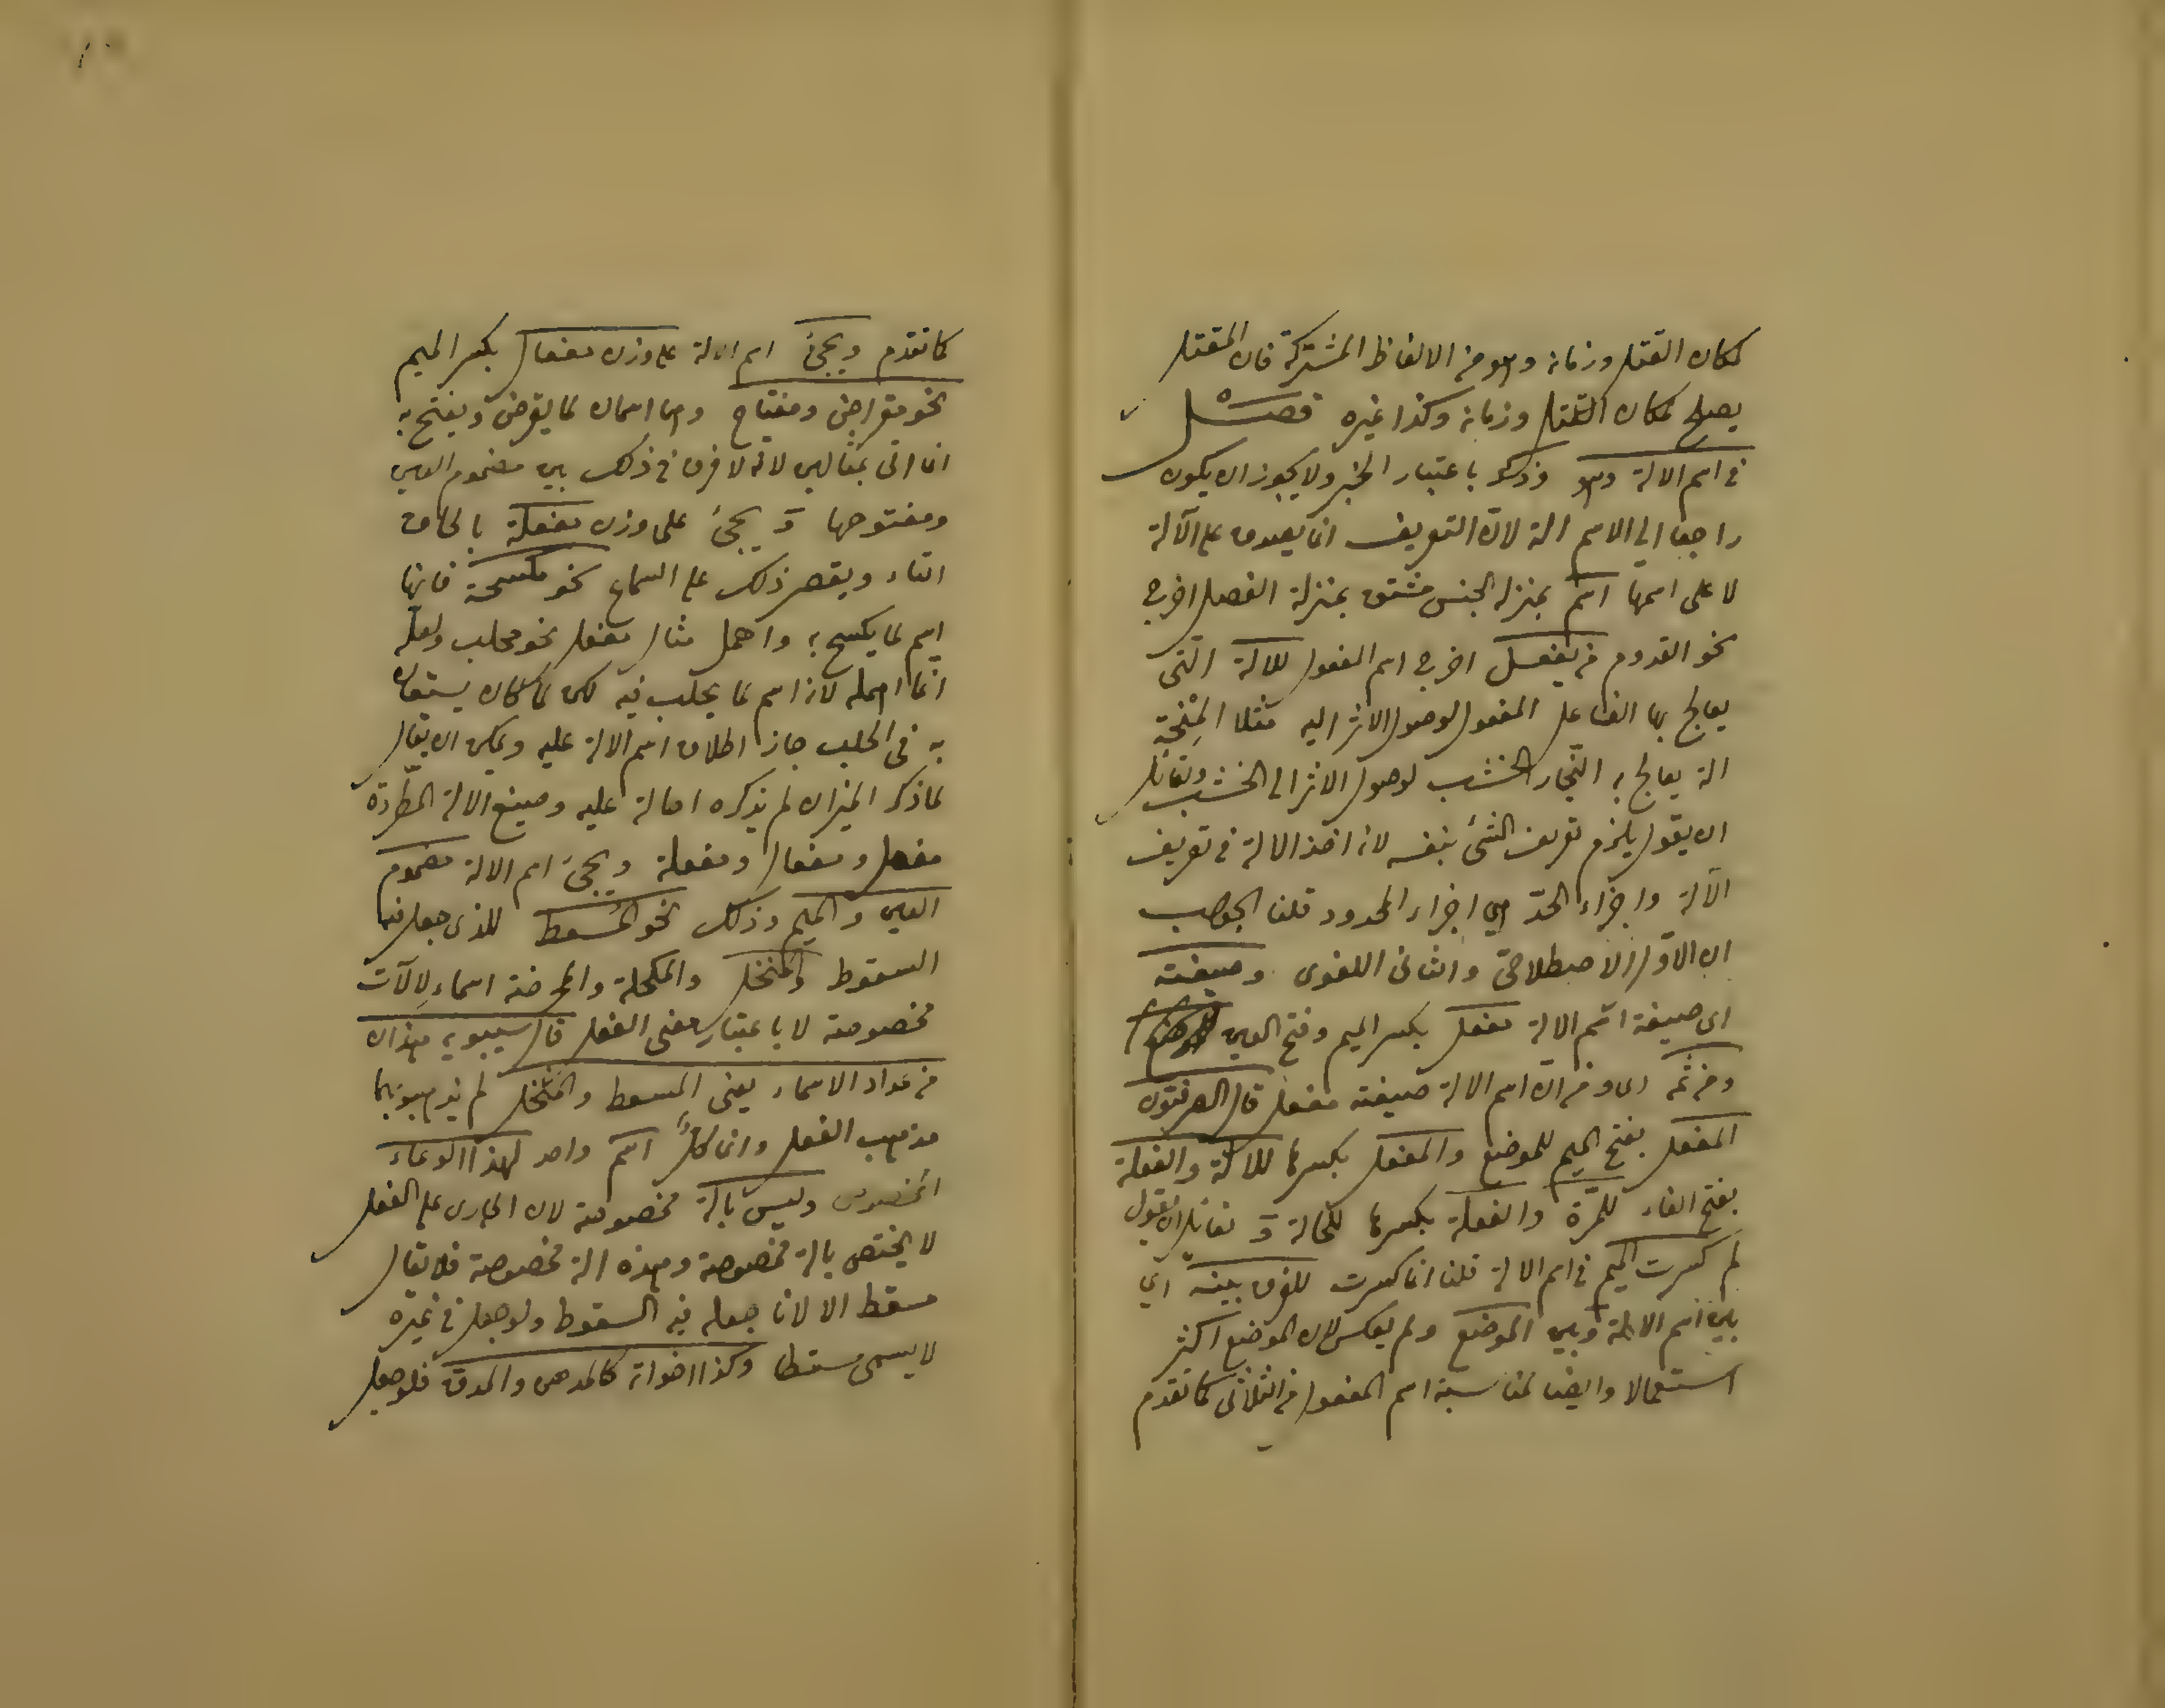 لمكان القتل وزمانه وهو من الالفاظ المشتركة فان المقتل
يصلح لمكان القتل وزمانه وكذا غيره فصل
فى اسم الالة وهو وذكر باعتبار الخبر ولا يجوز ان يكون
راجعا الى الاسم الة لان التعريف انما يصدق على الآلة
لا على اسمها اسم بمنزلة الجنس مشتق بمنزلة الفصل اخرج
نحو القدوم من يفعل اخرج اسم المفعول للالة التى
يعالج بها الفاعل المفعول لوصول الاثر اليه مثلا المنحتة
الة يعالج به النجار الخشب لوصول الاثر الى الخشب ولقائل
ان يقول يلزم تعريف الشئ بنفسه لانه اخذ الالة فى تعريف
الآلة واجزاء الحدّ هى اجزاء المحدود قلنا الجواب
ان الاوّل الاصطلاحىّ والثانى اللغوى وصيغته
اى صيغة اسم الالة مفعل بكسر الميم وفتح العين
ومن ثمّه اى ومن انّ اسم الالة صيغته مفعل قال الصرفيّون
المفعل بفتح الميم للموضع والمفعل بكسرها للالة والفعلة
بفتح الفاء للمرّة والفعلة بكسرها للحالة ولقائل ان يقول
لم كسرت الميم فى اسم الالة قلنا انما كسرت للفرق بينه اى
بين اسم الالة وبين الموضع ولم يعكس لان الموضع اكثر
استعمالا وايضا لمناسبة اسم المفعول من الثلاثى كما تقدم
كما تقدم ويجئ اسم الالة على وزن مفعال بكسر الميم
نحو مقراض ومفتاح وهما اسمان لما يقرض ويفتح به
انما اتى بمثالين لانه لا فرق فى ذلك بين مضموم العين
ومفتوحها ويجئ على وزن مفعلة بالحاق
التاء ويقصر ذلك على السماع نحو مكسحة فانها
اسم لما يكسح به واهمل مثال مفعل نحو محلب ولعله
انّما اهمله لانه اسم لما يحلب فيه لكن لما كان يستعان
به فى الحلب جاز اطلاق اسم الالة عليه ويمكن ان يقال
لما ذكر الميزان لم يذكره احالة عليه وصيغ الالة المطّردة
مفعل ومفعال ومفعلة ويجئ اسم الالة مضموم
العين والميم وذلك نحو المسعط للذى جعل فيه
السقوط والمنخل والمكحلة والمحرضة اسماء لالآت
مخصوصة لا باعتبار معنى الفعل قال سيبويه هذان
من عداد الاسماء يعنى المسعط والمنخل لم يذهبوا بهما
مذهب الفعل وانما كلّ اسم واحد لهذا الوعاء
المخصوص وليس بالة مخصوصة لان الجارى على الفعل
لا يختص بالة مخصوصة وهذه الة مخصوصة فلا يقال
مسقط الا لانا جعله فيه السقوط ولو جعل فى غيره
لا يسمى مسقطا وكذا اخواته كالمدهن والمدق فلو جعل